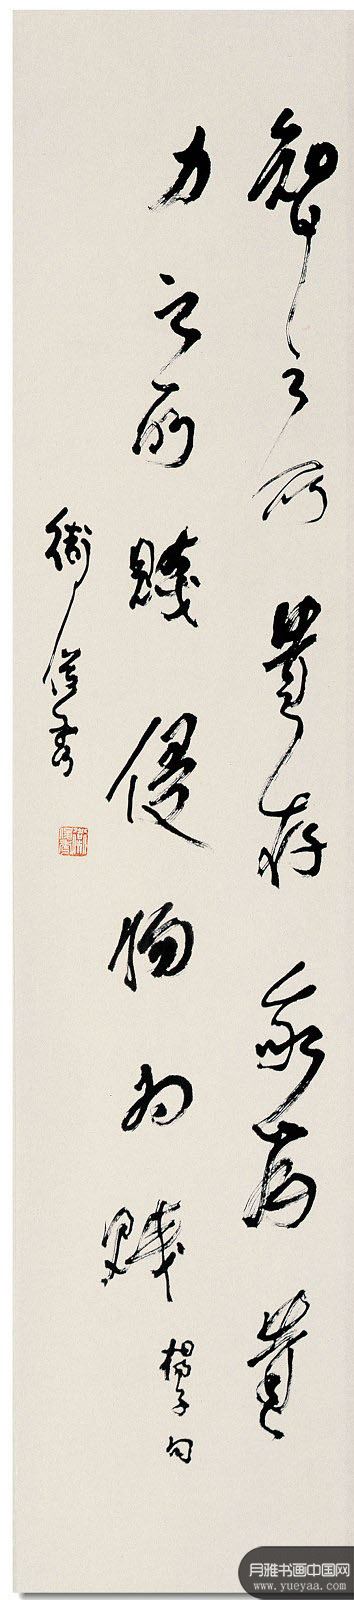 智之所貴存我為貴
力之所賤侵物為賤
楊子句
衛俊秀
月雅书画中国网
www.yueyaa.com